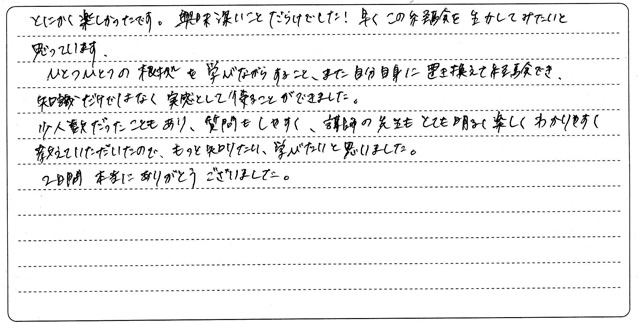 とにかく楽しかったです。興味深いことだらけでした！早くこの経験を生かしてみたいと
思っています。
ひとつひとつの根拠を学びながらすること、また自分自身に置き換えて経験でき、
知識だけではなく実感として得ることができました。
少人数だったこともあり、質問もしやすく、講師の先生もとても明るく楽しくわかりやすく
教えていただいたので、もっと知りたい、学びたいと思いました。
2日間 本当にありがとうございました。